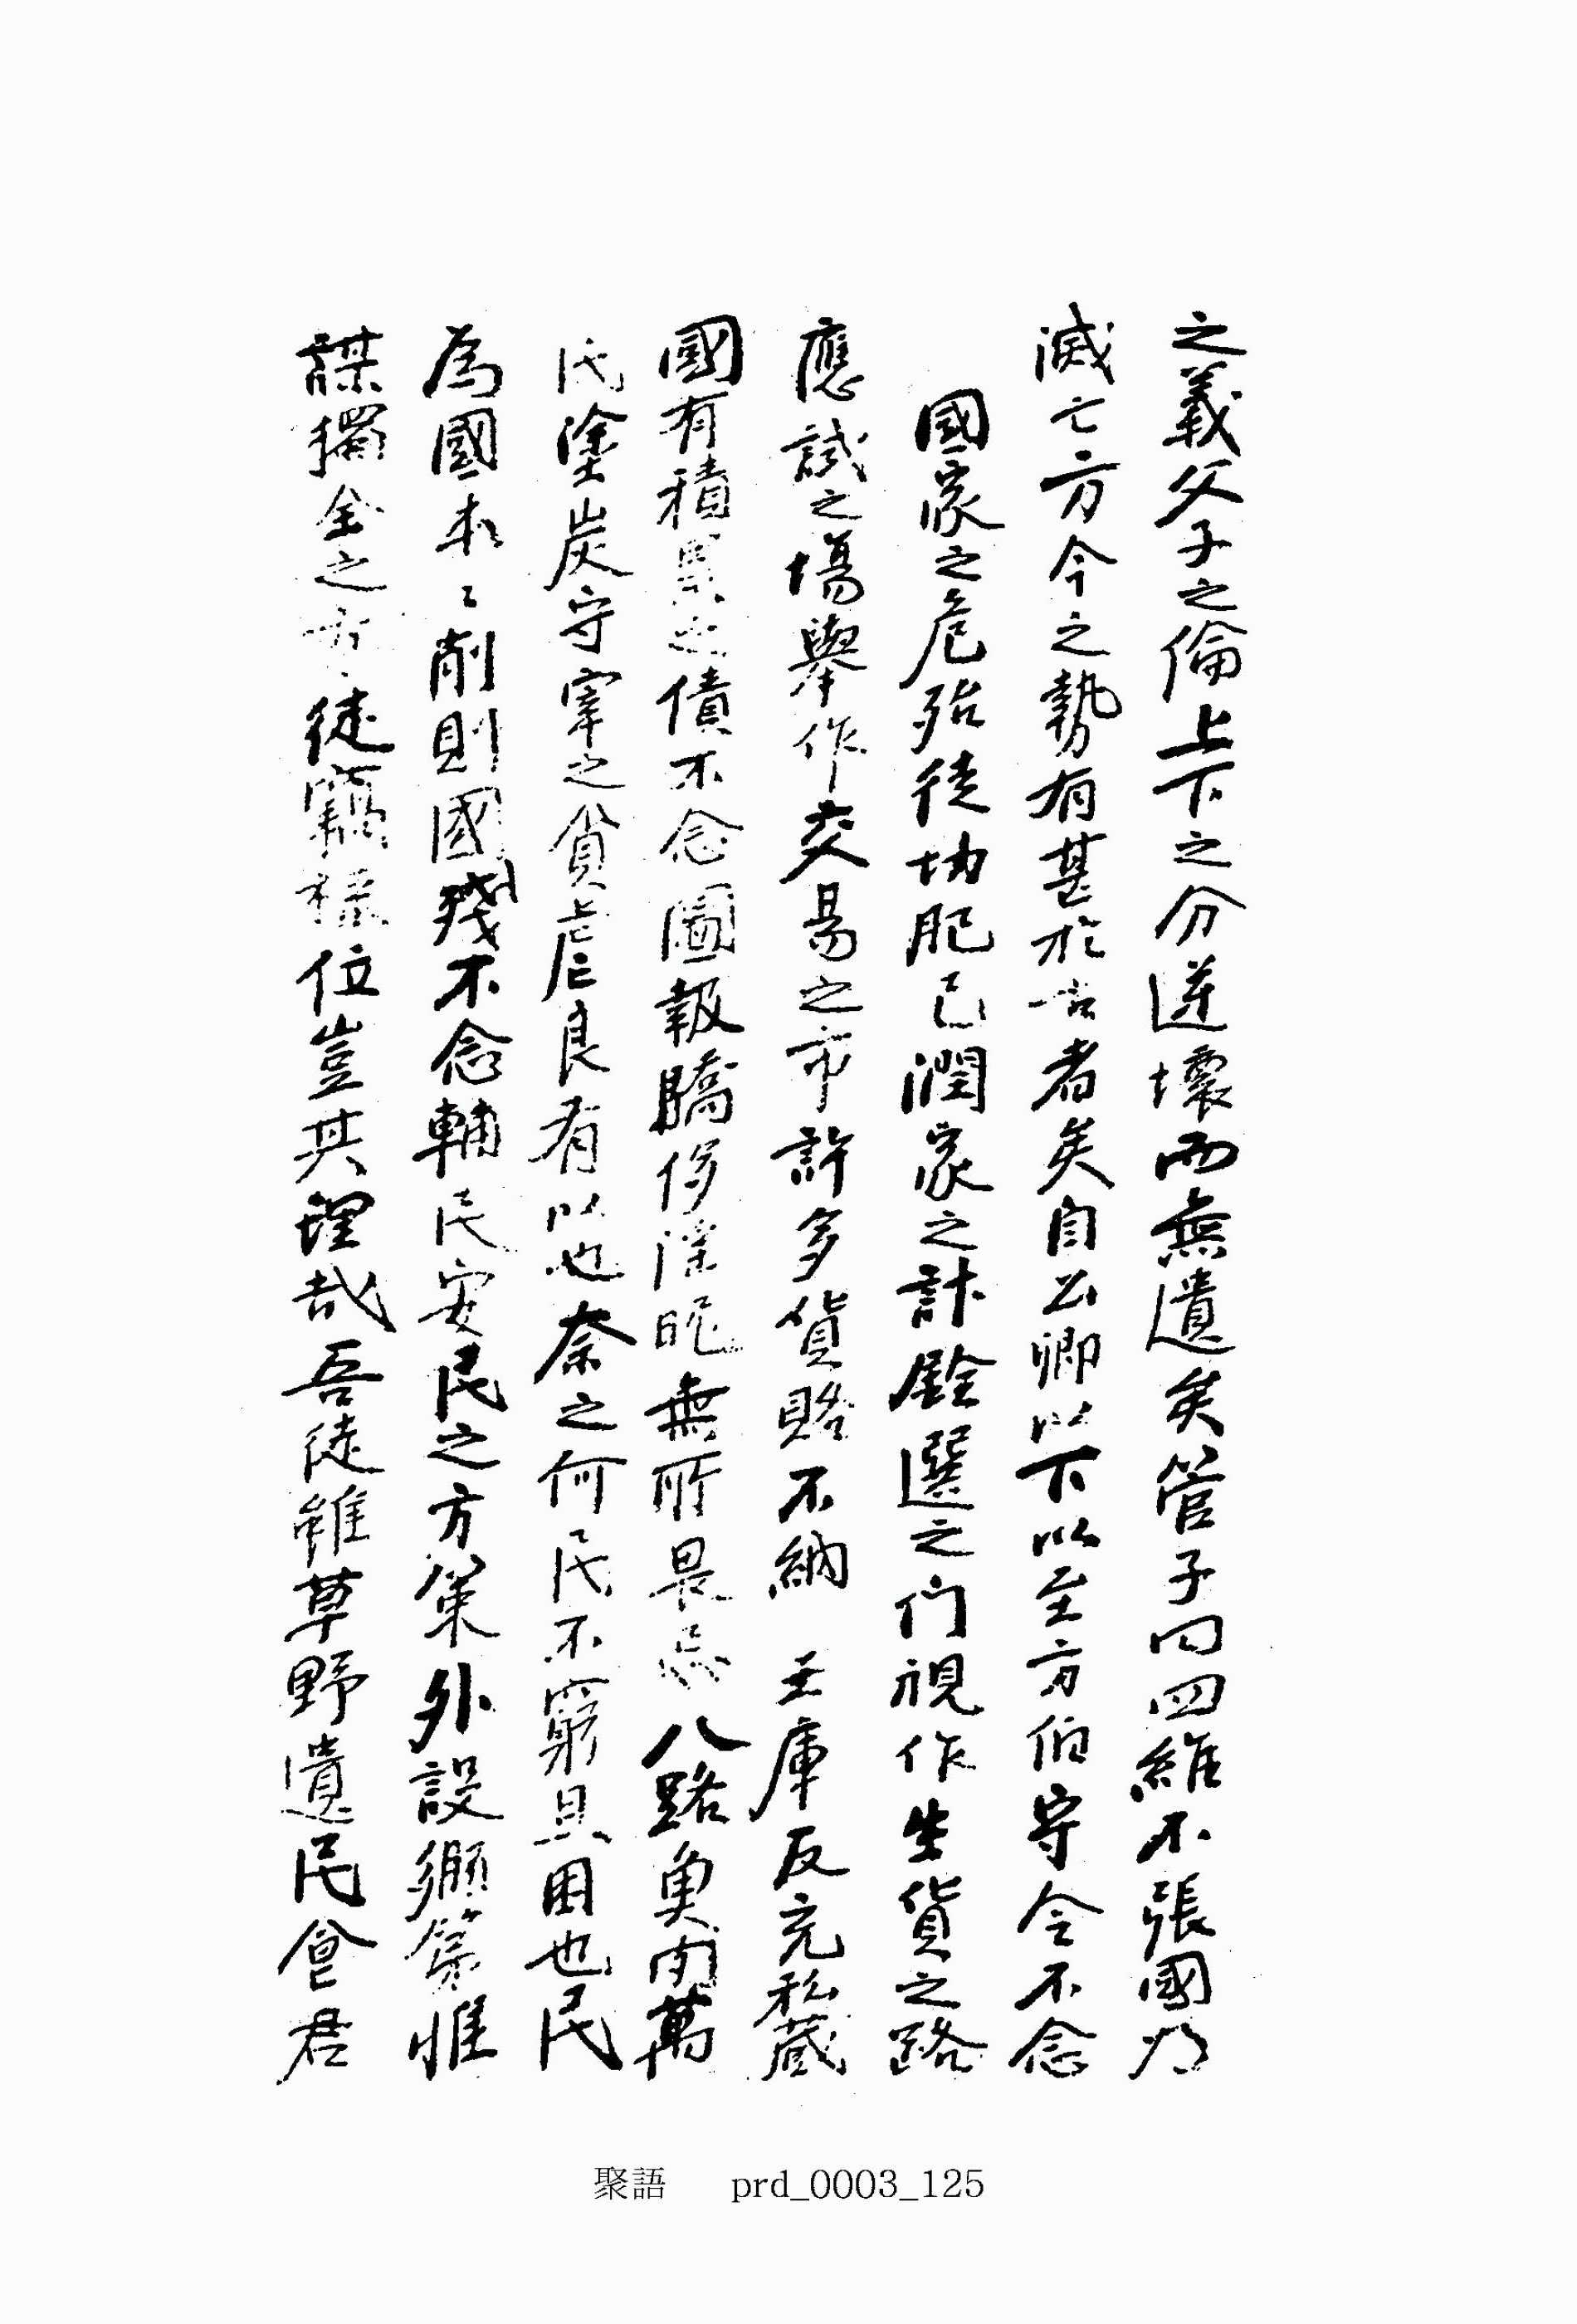 之義父子之倫上下之分逆壞而無遺矣管子曰四維不張國乃
滅亡方今之勢有甚於古者矣自公卿以下以至方伯守令不念
國家之危殆徒切肥己潤家之計銓選之門視作生貨之路
應試之場擧作交易之市許多貨賂不納 王庫反充私藏
國有積累之債不念圖報驕侈淫昵無所畏忌八路魚肉萬
民塗炭守宰之貪虐良有以也奈之何民不窮且困也民
為國本〻削則國殘不念輔民安民之方策外設鄕第惟
謀獨全之方徒竊祿位豈其理哉吾徒雖草野遺民食君
聚語 prd_0003_125